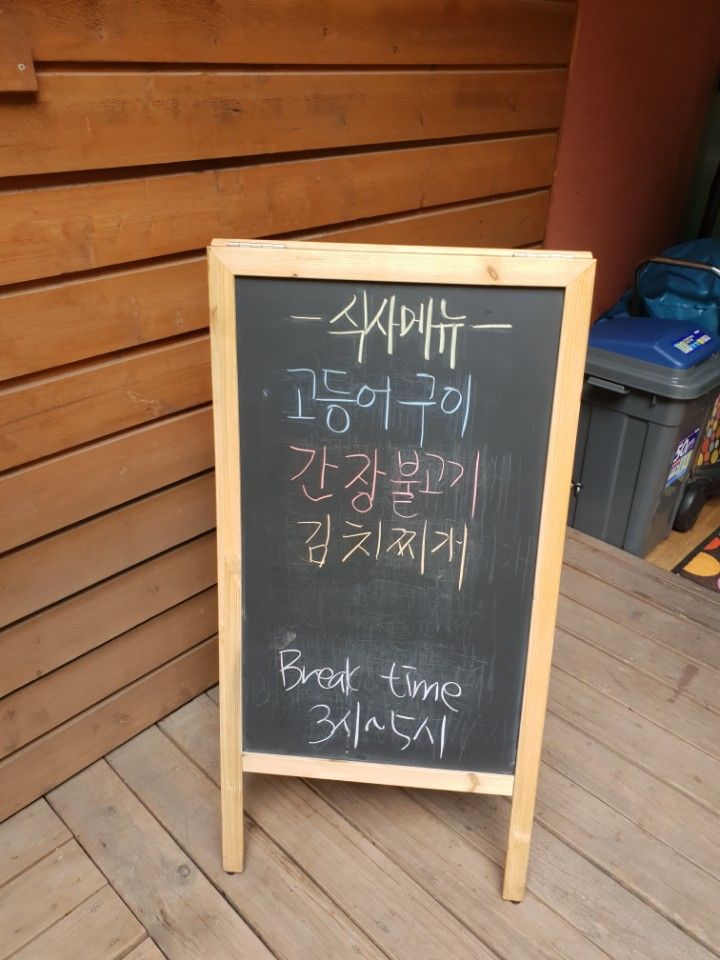 - 식사메뉴 -
고등어구이
간장불고기
김치찌개
Break time
3시~5시
50